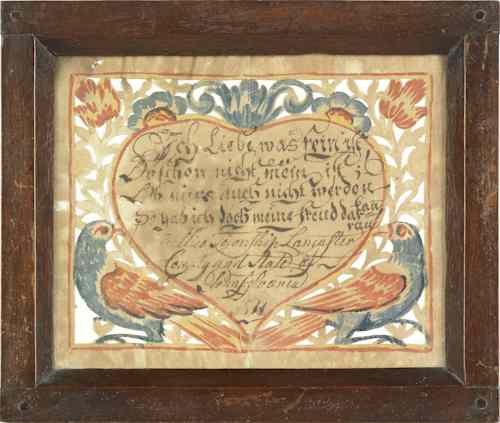 Ich Liebe was fein ist
Ob schon nicht mein ist
Ob mirs auch nicht werden kan
So hab ich doch meine freud daran
Township Lancaster
County and State of
Pennsylvania